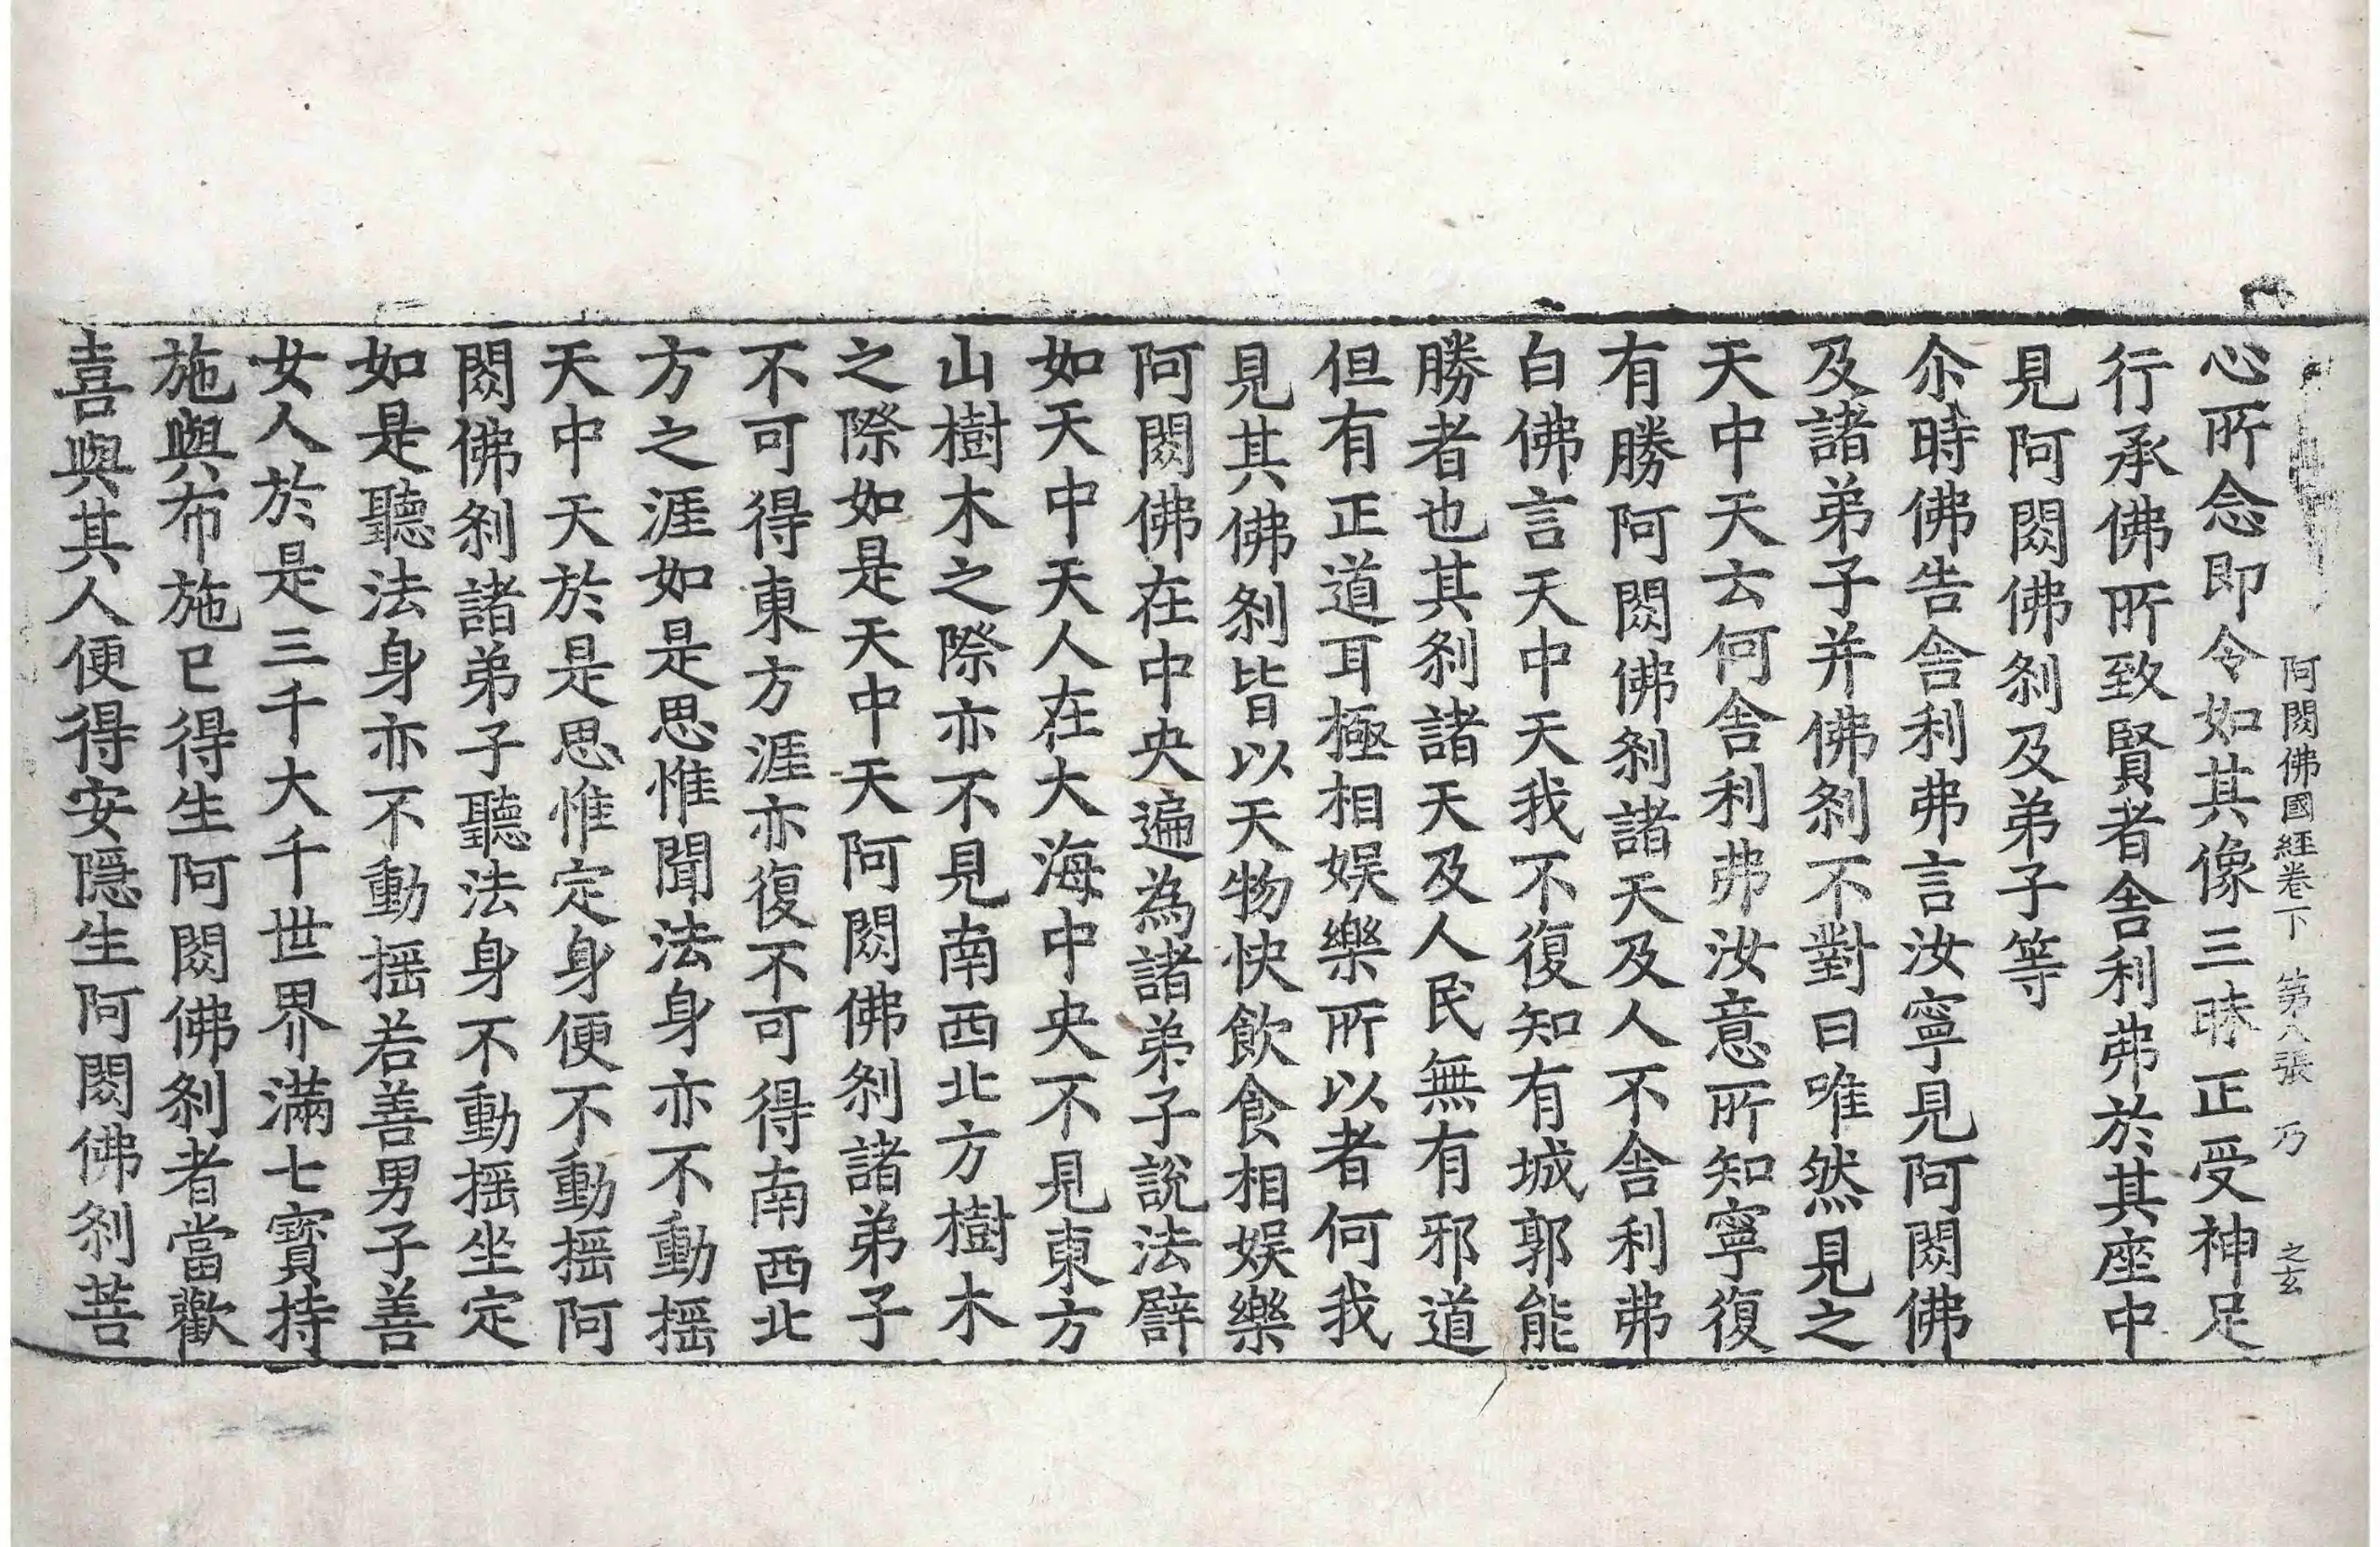 阿閦佛國經卷下 第八張 乃 之玄
心所念即令如其像三昧正受神足
行承佛所致賢者舎利弗於其座中
見阿閦佛刹及弟子等
尒時佛告舎利弗言汝寧見阿閦佛
及諸弟子并佛刹不對曰唯然見之
天中天云何舎利弗汝意所知寧復
有勝阿閦佛刹諸天及人不舎利弗
白佛言天中天我不復知有城郭能
勝者也其刹諸天及人民無有邪道
但有正道耳極相娛樂所以者何我
見其佛刹皆以天物快飲食相娛樂
阿閦佛在中央遍為諸弟子說法譬
如天中天人在大海中央不見東方
山樹木之際亦不見南西北方樹木
之際如是天中天阿閦佛刹諸弟子
不可得東方涯亦復不可得南西北
方之涯如是思惟聞法身亦不動摇
天中天於是思惟定身便不動摇阿
閦佛刹諸弟子聽法身不動摇坐定
如是聽法身亦不動摇若善男子善
女人於是三千大千世界滿七寶持
施與布施已得生阿閦佛刹者當歡
喜與其人便得安隱生阿閦佛刹菩